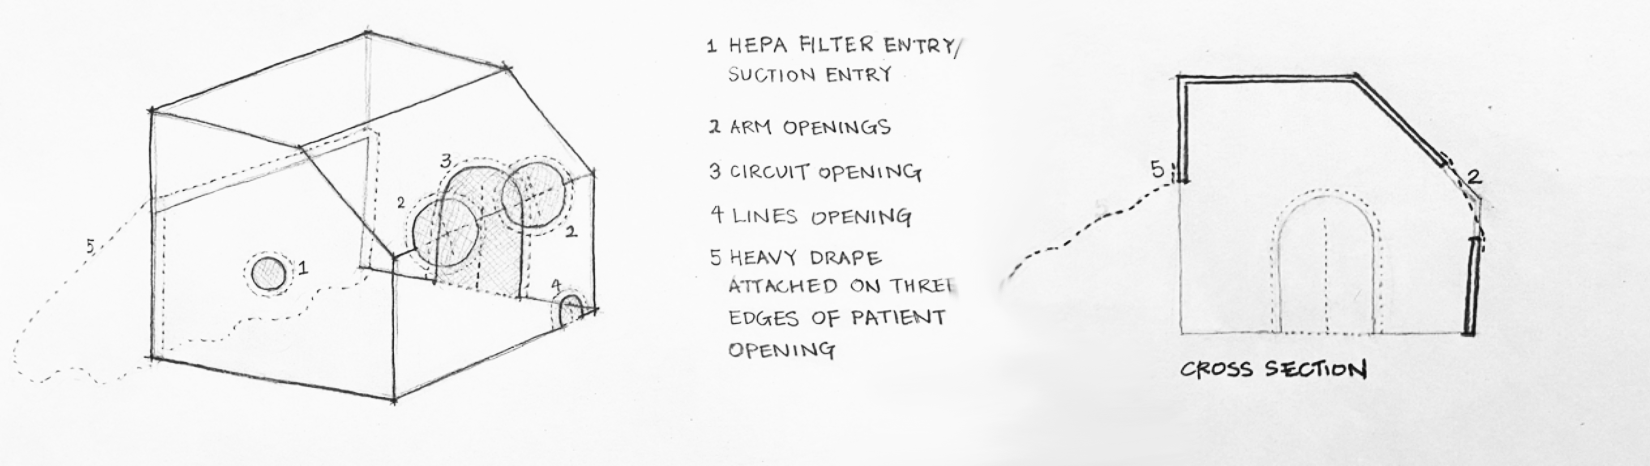 1 HEPA FILTER ENTRY/
SUCTION ENTRY
2 ARM OPENINGS
3 CIRCUIT OPENING
4 LINES OPENING
5 HEAVY DRAPE
ATTACHED ON THREE
EDGES OF PATIENT
OPENING
3
2
2
5
1
4
5
2
CROSS SECTION